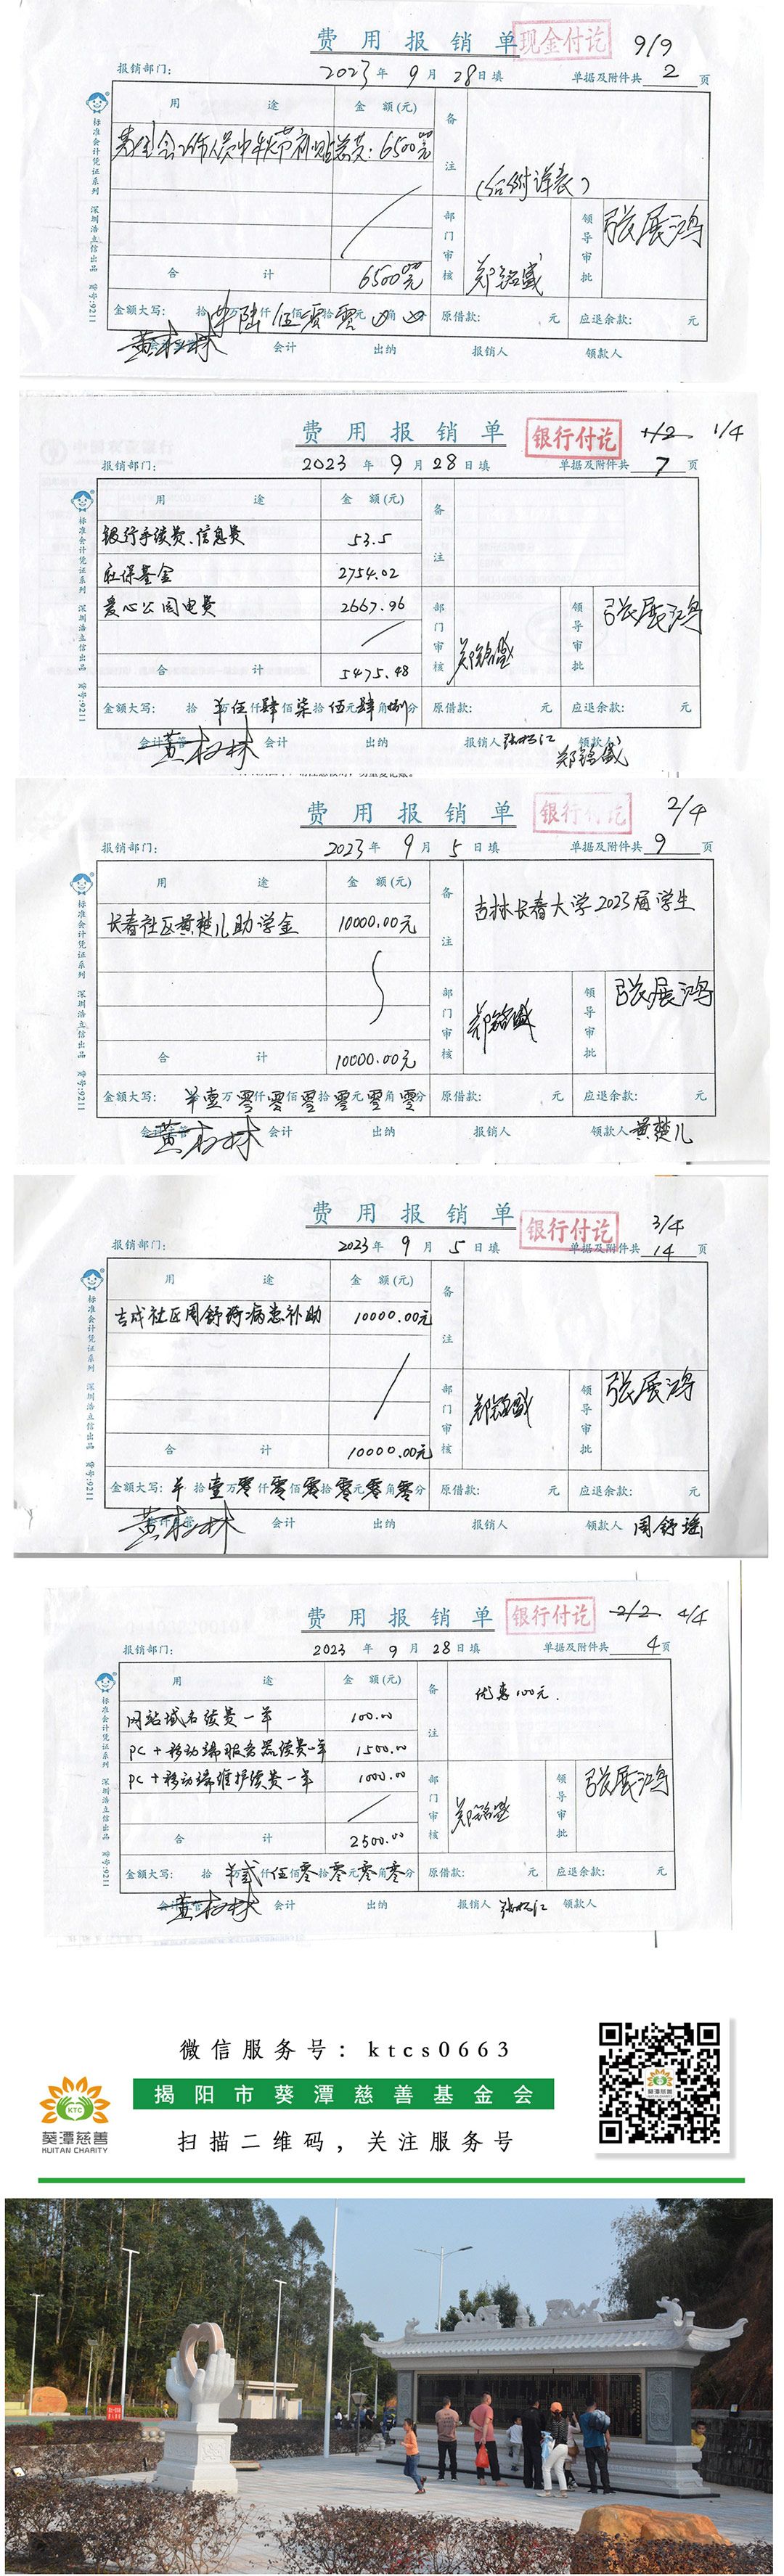 费用报销单 现金付讫 9/9
报销部门： 2023年9月28日填 单据及附件共 2 页
用途 金额(元) 备注
基金会工作人员中秋节补贴总共：6500元
(后附详表)
部门审核 郑铭盛 领导审批 张展鸿
合计 6500元
金额大写： 拾 万陆仟伍佰零拾零元 角 分 原借款： 元 应退余款： 元
会计主管 黄 林 会计 出纳 报销人 领款人
标准会计凭证系列 深圳浩立信出品 货号:9211
费用报销单 银行付讫 1/2 1/4
报销部门： 2023年9月28日填 单据及附件共 7 页
用途 金额(元) 备注
银行手续费、信息费 53.5
社保基金 2754.02
爱心公园电费 2667.96
部门审核 郑铭盛 领导审批 张展鸿
合计 5475.48
金额大写： 拾 万伍仟肆佰柒拾伍元肆角捌分 原借款： 元 应退余款： 元
会计主管 黄 林 会计 出纳 报销人 领款人 郑铭盛
标准会计凭证系列 深圳浩立信出品 货号:9211
费用报销单 银行付讫 2/4
报销部门： 2023年9月5日填 单据及附件共 9 页
用途 金额(元) 备注
长春社区黄楚儿助学金 10000.00元
吉林长春大学2023届学生
部门审核 郑铭盛 领导审批 张展鸿
合计 10000.00元
金额大写： 壹万零仟零佰零拾零元零角零分 原借款： 元 应退余款： 元
会计主管 黄 林 会计 出纳 报销人 领款人 黄楚儿
标准会计凭证系列 深圳浩立信出品 货号:9211
费用报销单 银行付讫 3/4
报销部门： 2023年9月5日填 单据及附件共 14 页
用途 金额(元) 备注
吉成社区周舒瑶病患补助 10000.00元
部门审核 郑铭盛 领导审批 张展鸿
合计 10000.00元
金额大写： 拾壹万零仟零佰零拾零元零角零分 原借款： 元 应退余款： 元
会计主管 黄 林 会计 出纳 报销人 领款人 周舒瑶
标准会计凭证系列 深圳浩立信出品 货号:9211
费用报销单 银行付讫 2/2 4/4
报销部门： 2023年9月28日填 单据及附件共 4 页
用途 金额(元) 备注
网站域名续费一年 100.00
优惠100元.
PC+移动端服务器续费一年 1500.00
PC+移动端维护续费一年 1000.00
部门审核 郑铭盛 领导审批 张展鸿
合计 2500.00
金额大写： 拾 万贰仟伍佰零拾零元零角零分 原借款： 元 应退余款： 元
会计主管 黄 林 会计 出纳 报销人 领款人
标准会计凭证系列 深圳浩立信出品 货号:9211
微信服务号：ktcs0663
揭阳市葵潭慈善基金会
扫描二维码，关注服务号
KTC
葵潭慈善
KUITAN CHARITY
葵潭慈善